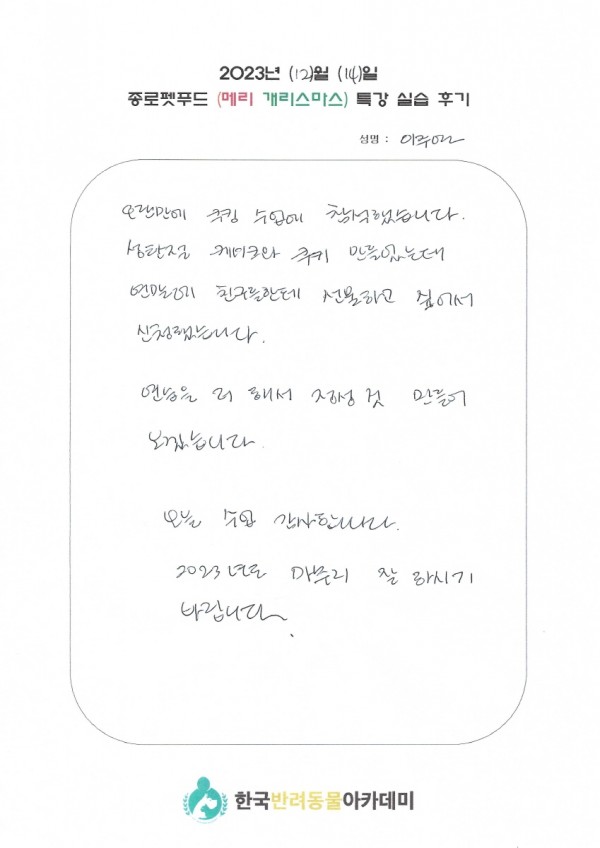 2023년 (12)월 (14)일
종로펫푸드 (메리 개리스마스) 특강 실습 후기
성명 : 이주
오랜만에 쿠킹 수업에 참석했습니다.
성탄절 케이크와 쿠키 만들었는데
연말에 친구들한테 선물하고 싶어서
신청했습니다.
연습을 더 해서 정성 것 만들어
보겠습니다.
오늘 수업 감사합니다.
2023년도 마무리 잘 하시기
바랍니다.
한국반려동물아카데미